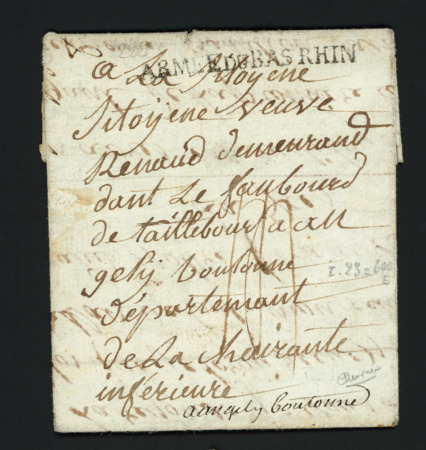 ARMÉE DU BAS RHIN
a La Sitoyene
Sitoyene veuve
Renaud demeurand
dant Le faubourd
de taillebour a an
gely boutonne
département
de La chairante
inférieure
a angely boutonne